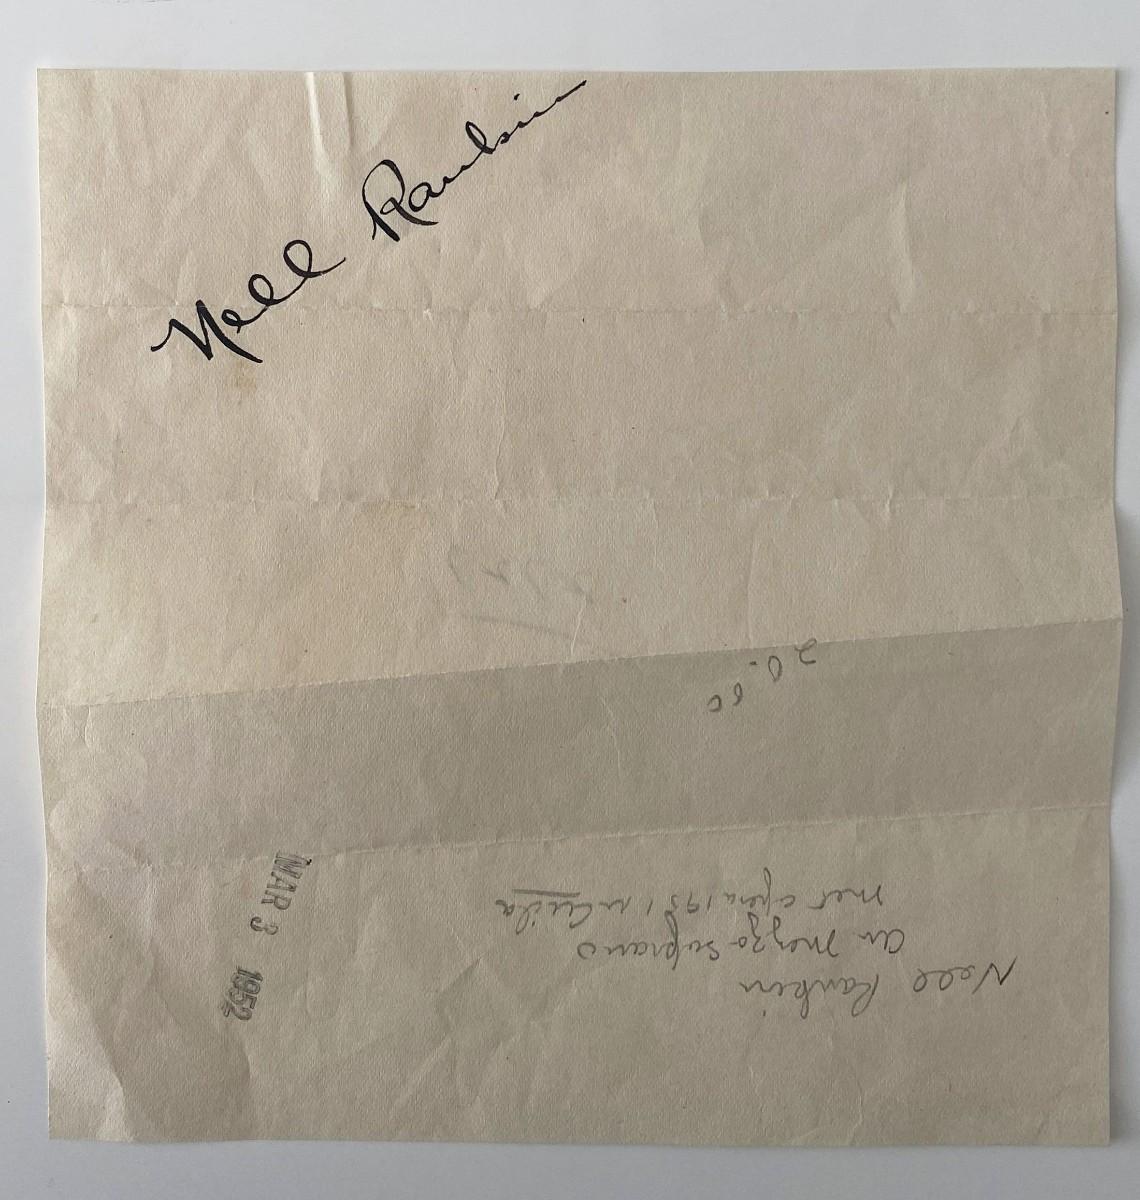 Nell Rankin
20.00
MAR 3 1952
Nell Rankin
an mezzo soprano
met opera 1951 in